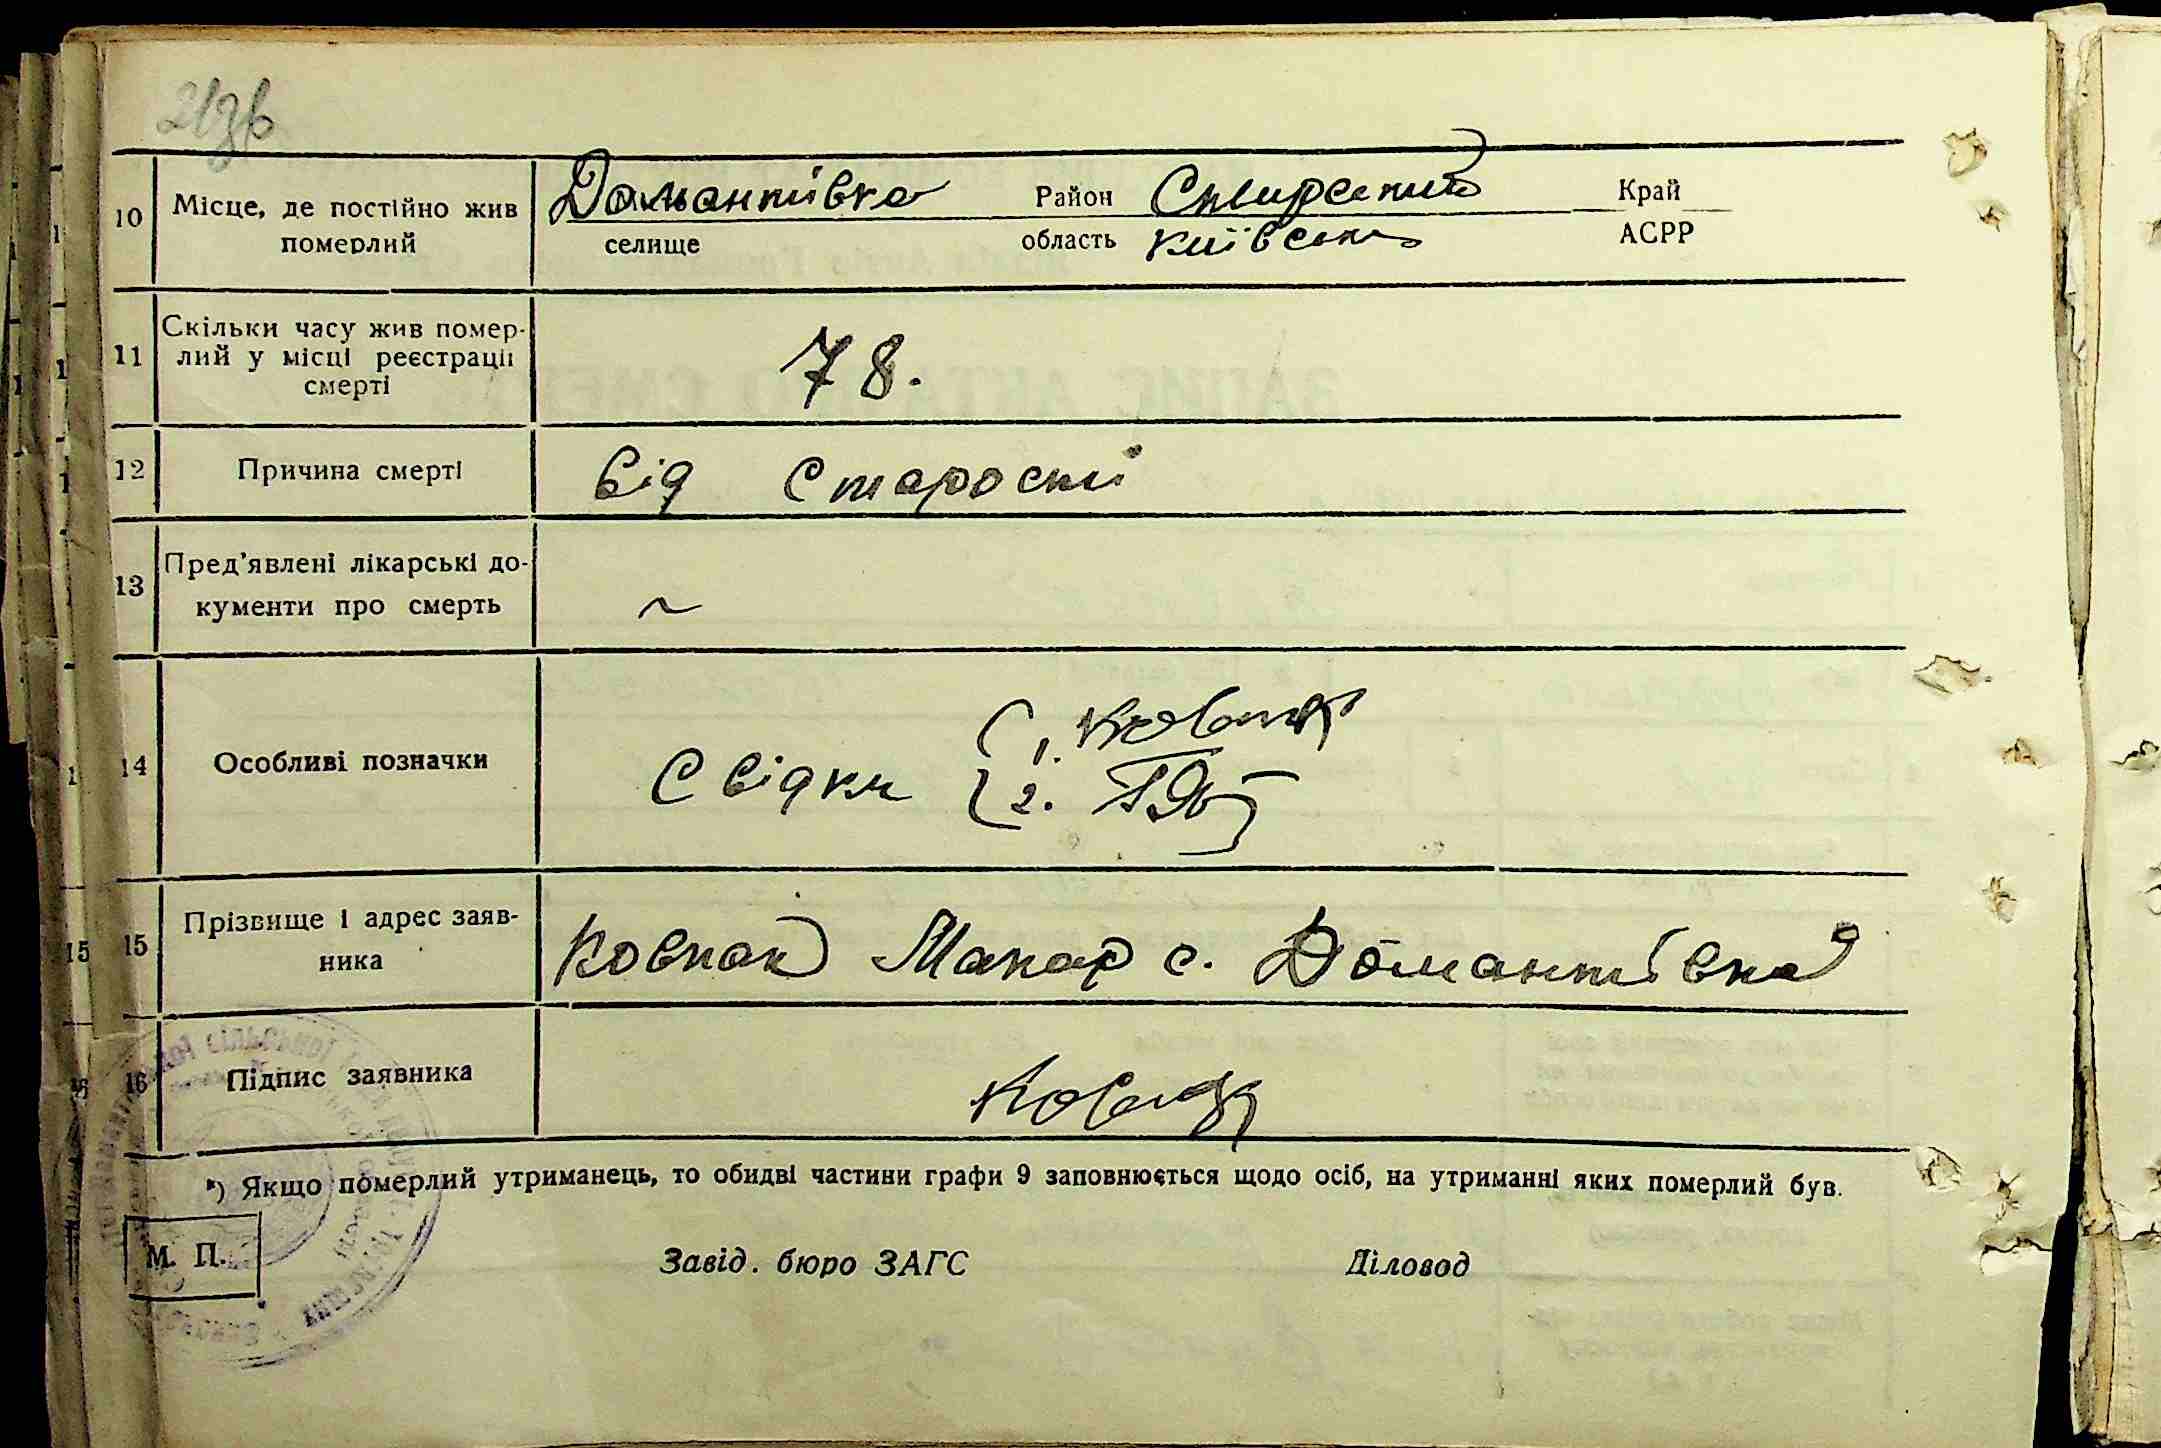 213в
10 Місце, де постійно жив Домантівка Район Сквирский Край
померлий селище область Київська АСРР
11 Скільки часу жив помер-
лий у місці реєстрації 78.
смерті
12 Причина смерті від старости
13 Пред'явлені лікарські до-
кументи про смерть ~
14 Особливі позначки Свідки 1. Ковпак
2.
15 Прізвище і адрес заяв-
ника Ковпак Макар с. Домантівка
16 Підпис заявника Ковпак
*) Якщо померлий утриманець, то обидві частини графи 9 заповнюється щодо осіб, на утриманні яких померлий був.
М. П. Завід. бюро ЗАГС Діловод